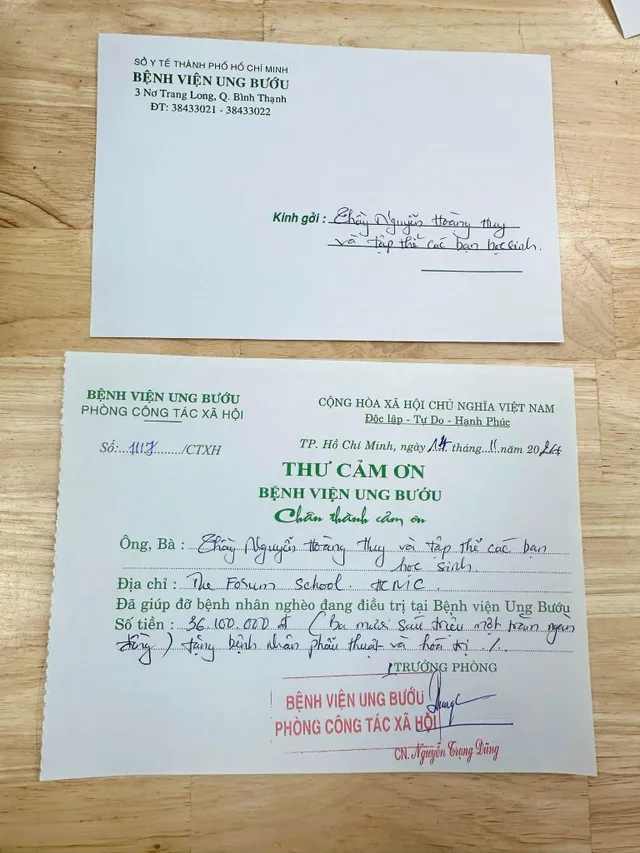 SỞ Y TẾ THÀNH PHỐ HỒ CHÍ MINH
BỆNH VIỆN UNG BƯỚU
3 Nơ Trang Long, Q. Bình Thạnh
ĐT: 38433021 - 38433022
Kính gởi : Thầy Nguyễn Hoàng Huy
và tập thể các bạn học sinh.
BỆNH VIỆN UNG BƯỚU
PHÒNG CÔNG TÁC XÃ HỘI
CỘNG HÒA XÃ HỘI CHỦ NGHĨA VIỆT NAM
Độc lập - Tự Do - Hạnh Phúc
Số:........./CTXH
TP. Hồ Chí Minh, ngày 14 tháng 11 năm 20
THƯ CẢM ƠN
BỆNH VIỆN UNG BƯỚU
Chân thành cảm ơn
Ông, Bà : Thầy Nguyễn Hoàng Huy và tập thể các bạn
học sinh.
Địa chỉ : The Forum School. HCMC.
Đã giúp đỡ bệnh nhân nghèo đang điều trị tại Bệnh viện Ung Bướu
Số tiền : 36.100.000 đ ( Ba mươi sáu triệu một trăm ngàn
đồng ) tặng bệnh nhân phẫu thuật và hóa trị ./.
TRƯỞNG PHÒNG
BỆNH VIỆN UNG BƯỚU
PHÒNG CÔNG TÁC XÃ HỘI
CN. Nguyễn Trọng Dũng